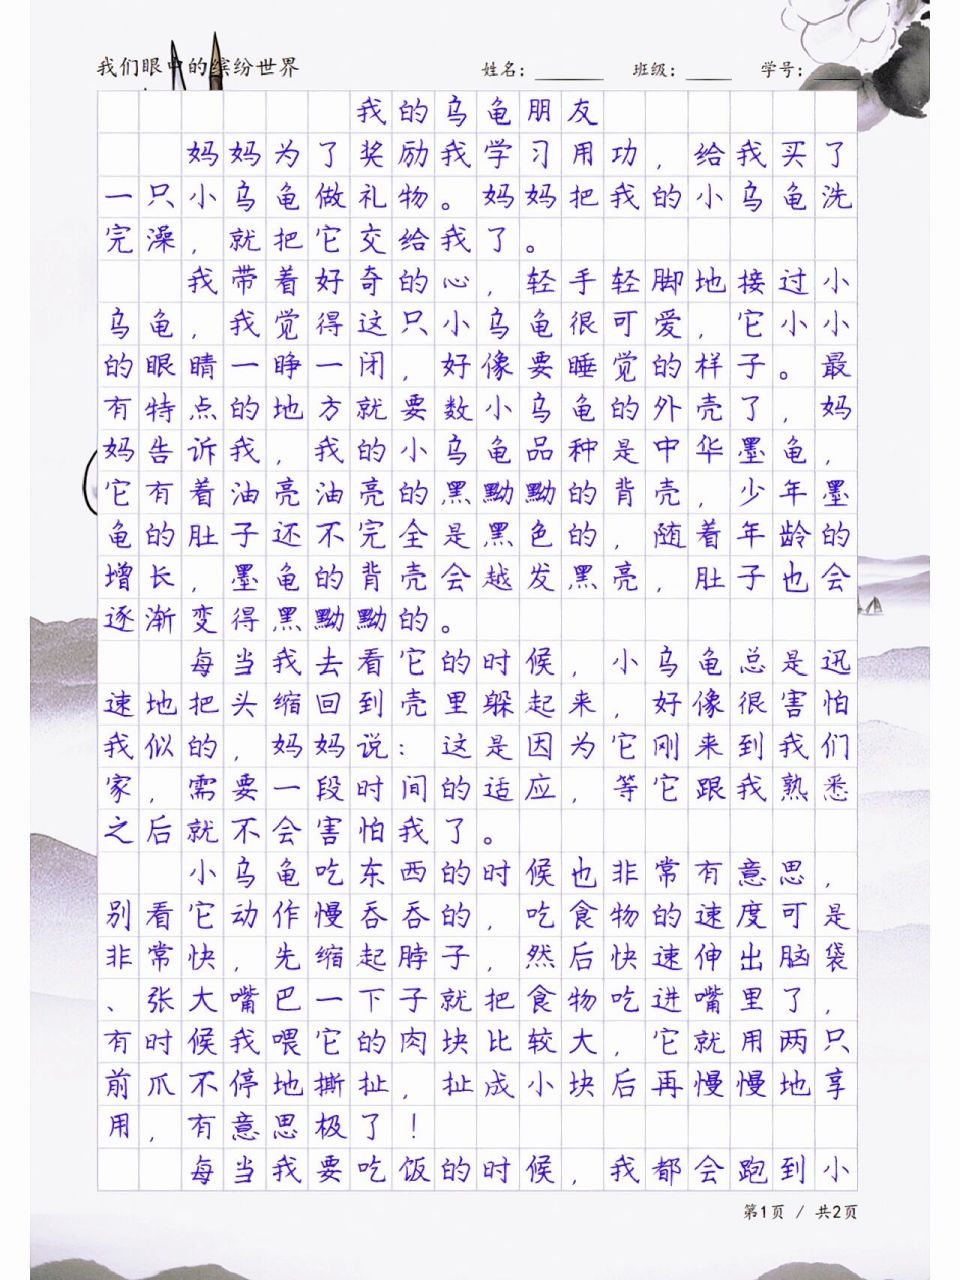 我们眼中的缤纷世界
姓名：______ 班级：____ 学号：____
我的乌龟朋友
妈妈为了奖励我学习用功，给我买了
一只小乌龟做礼物。妈妈把我的小乌龟洗
完澡，就把它交给我了。
我带着好奇的心，轻手轻脚地接过小
乌龟，我觉得这只小乌龟很可爱，它小小
的眼睛一睁一闭，好像要睡觉的样子。最
有特点的地方就要数小乌龟的外壳了，妈
妈告诉我，我的小乌龟品种是中华墨龟，
它有着油亮油亮的黑黝黝的背壳，少年墨
龟的肚子还不完全是黑色的，随着年龄的
增长，墨龟的背壳会越发黑亮，肚子也会
逐渐变得黑黝黝的。
每当我去看它的时候，小乌龟总是迅
速地把头缩回到壳里躲起来，好像很害怕
我似的，妈妈说：这是因为它刚来到我们
家，需要一段时间的适应，等它跟我熟悉
之后就不会害怕我了。
小乌龟吃东西的时候也非常有意思，
别看它动作慢吞吞的，吃食物的速度可是
非常快，先缩起脖子，然后快速伸出脑袋
、张大嘴巴一下子就把食物吃进嘴里了，
有时候我喂它的肉块比较大，它就用两只
前爪不停地撕扯，扯成小块后再慢慢地享
用，有意思极了！
每当我要吃饭的时候，我都会跑到小
第1页 / 共2页